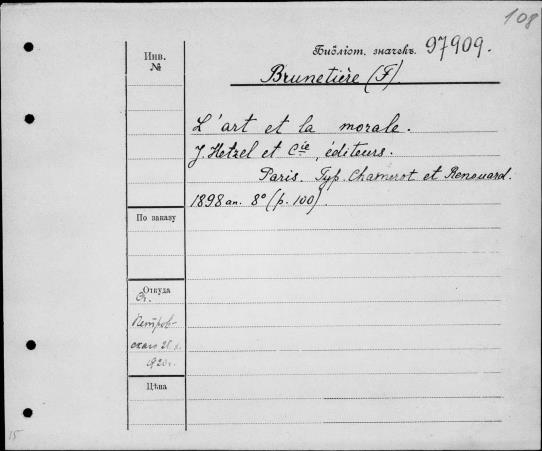 108
Библіот. значекъ. 97909.
Инв.
№
Brunetière (F)
L'art et la morale.
J. Hetzel et Cie, éditeurs.
Paris. Typ. Chamerot et Renouard.
1898 an. 8° (p. 100).
По заказу
Откуда
От.
Петров-
скаго 28
1920 г.
Цѣна
15